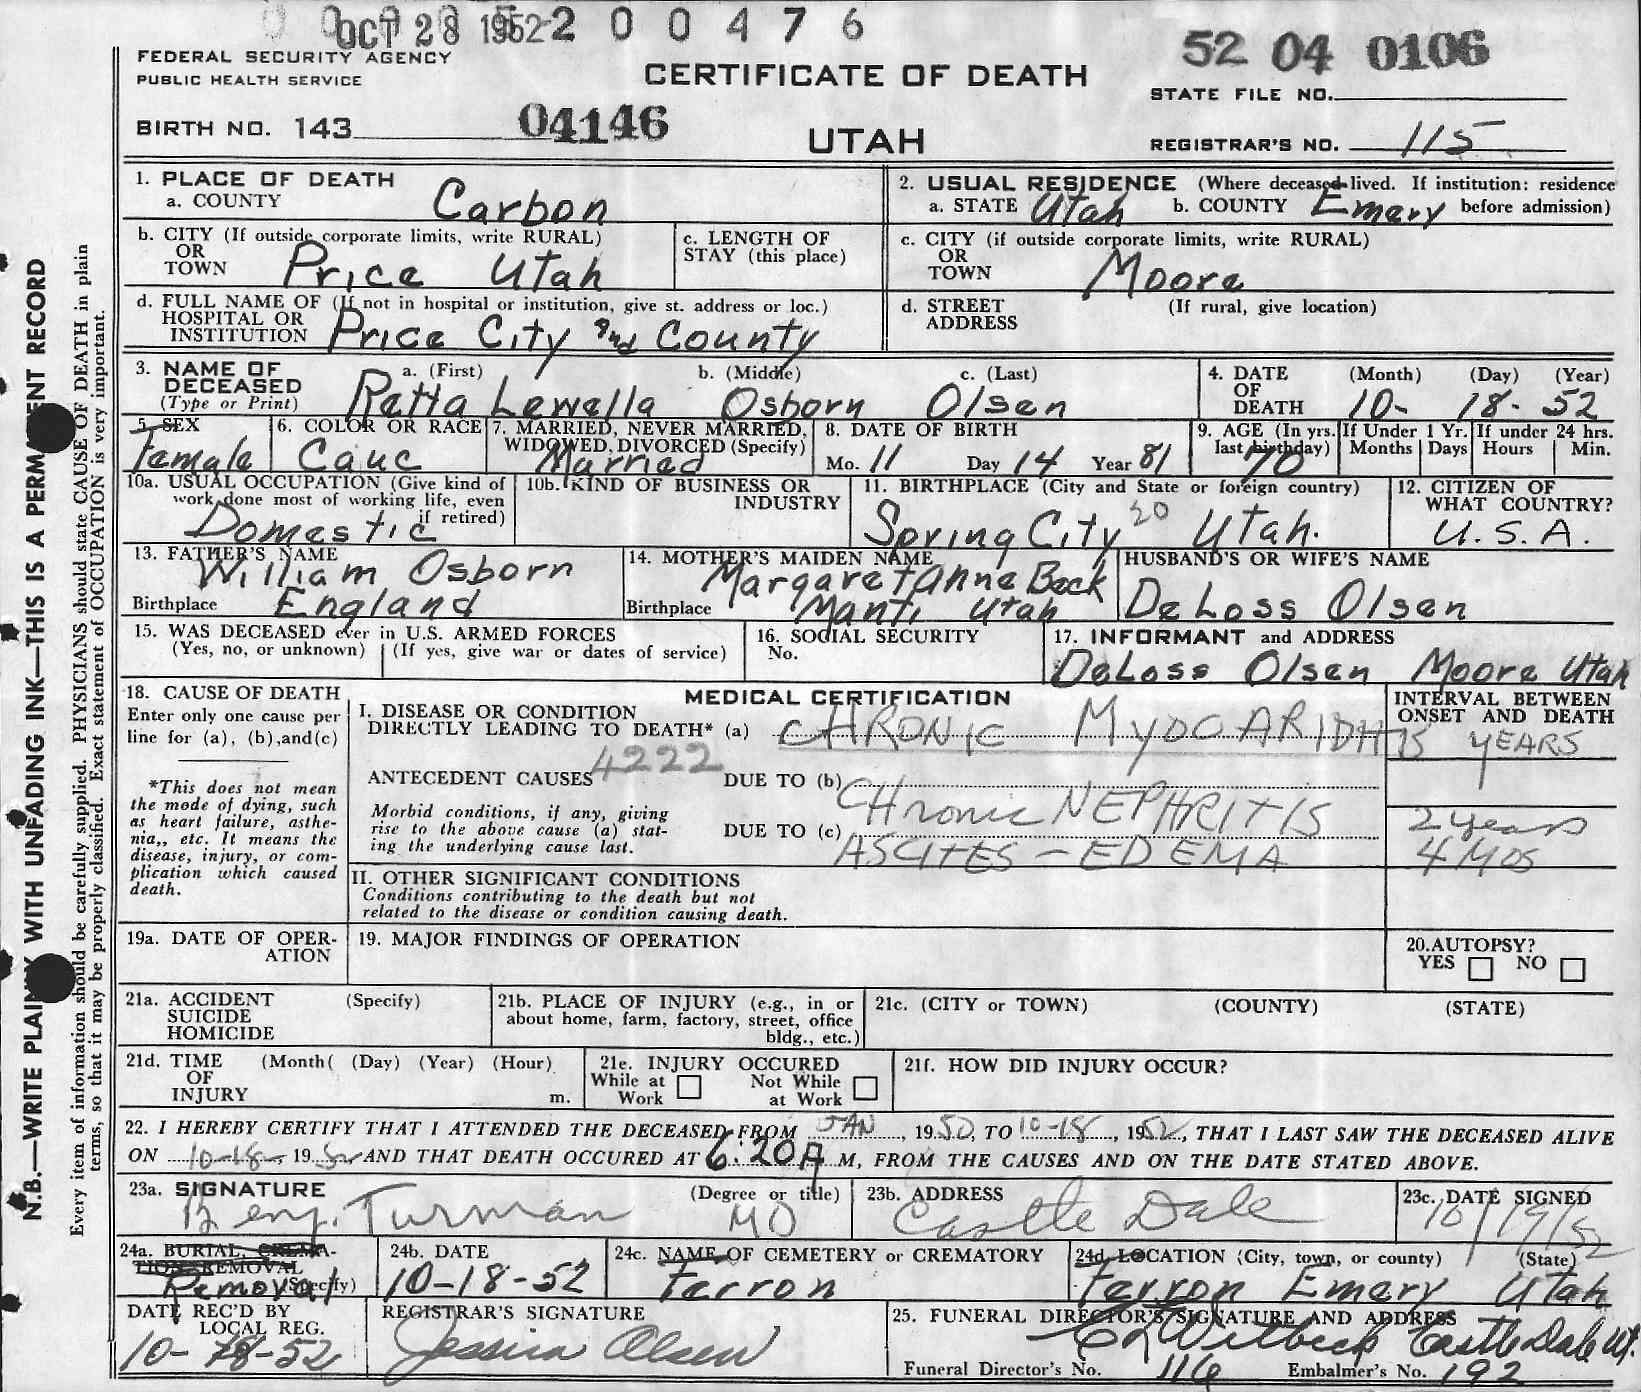 OCT 28 1952 2 0 0 4 7 6
FEDERAL SECURITY AGENCY
PUBLIC HEALTH SERVICE
CERTIFICATE OF DEATH
52 04 0106
STATE FILE NO.
BIRTH NO. 143 04146
UTAH
REGISTRAR'S NO. 115
1. PLACE OF DEATH
a. COUNTY Carbon
2. USUAL RESIDENCE (Where deceased lived. If institution: residence
a. STATE Utah b. COUNTY Emery before admission)
b. CITY (If outside corporate limits, write RURAL)
OR
TOWN Price Utah
c. LENGTH OF
STAY (this place)
c. CITY (if outside corporate limits, write RURAL)
OR
TOWN Moore
d. FULL NAME OF (If not in hospital or institution, give st. address or loc.)
HOSPITAL OR
INSTITUTION Price City and County
d. STREET (If rural, give location)
ADDRESS
3. NAME OF
DECEASED
(Type or Print)
a. (First) b. (Middle) c. (Last)
Retta Lewella Osborn Olsen
4. DATE (Month) (Day) (Year)
OF
DEATH 10- 18- 52
5. SEX
Female
6. COLOR OR RACE
Cauc
7. MARRIED, NEVER MARRIED,
WIDOWED, DIVORCED (Specify)
Married
8. DATE OF BIRTH
Mo. 11 Day 14 Year 81
9. AGE (In yrs.
last birthday)
70
If Under 1 Yr.
Months Days
If under 24 hrs.
Hours Min.
10a. USUAL OCCUPATION (Give kind of
work done most of working life, even
if retired)
Domestic
10b. KIND OF BUSINESS OR
INDUSTRY
11. BIRTHPLACE (City and State or foreign country)
20
Spring City Utah.
12. CITIZEN OF
WHAT COUNTRY?
U.S.A.
13. FATHER'S NAME
William Osborn
Birthplace England
14. MOTHER'S MAIDEN NAME
Margaret Anne Beck
Birthplace Manti Utah
HUSBAND'S OR WIFE'S NAME
DeLoss Olsen
15. WAS DECEASED ever in U.S. ARMED FORCES
(Yes, no, or unknown) (If yes, give war or dates of service)
16. SOCIAL SECURITY
No.
17. INFORMANT and ADDRESS
DeLoss Olsen Moore Utah
18. CAUSE OF DEATH
Enter only one cause per
line for (a), (b), and (c)
*This does not mean
the mode of dying, such
as heart failure, asthe-
nia,, etc. It means the
disease, injury, or com-
plication which caused
death.
MEDICAL CERTIFICATION
I. DISEASE OR CONDITION
DIRECTLY LEADING TO DEATH* (a) CHRONIC MYOCARIDH
INTERVAL BETWEEN
ONSET AND DEATH
15 YEARS
4222
ANTECEDENT CAUSES DUE TO (b)
CHronic NEPHRITIS 2 years
Morbid conditions, if any, giving
rise to the above cause (a) stat-
ing the underlying cause last.
DUE TO (c)
ASCITES - EDEMA 4 MOS
II. OTHER SIGNIFICANT CONDITIONS
Conditions contributing to the death but not
related to the disease or condition causing death.
19a. DATE OF OPER-
ATION
19. MAJOR FINDINGS OF OPERATION
20. AUTOPSY?
YES NO
21a. ACCIDENT (Specify)
SUICIDE
HOMICIDE
21b. PLACE OF INJURY (e.g., in or
about home, farm, factory, street, office
bldg., etc.)
21c. (CITY or TOWN) (COUNTY) (STATE)
21d. TIME (Month( (Day) (Year) (Hour)
OF
INJURY m.
21e. INJURY OCCURED
While at Not While
Work at Work
21f. HOW DID INJURY OCCUR?
22. I HEREBY CERTIFY THAT I ATTENDED THE DECEASED FROM JAN, 1950, TO 10-18, 1952, THAT I LAST SAW THE DECEASED ALIVE
ON 10-18- 1952 AND THAT DEATH OCCURED AT 6.20A M, FROM THE CAUSES AND ON THE DATE STATED ABOVE.
23a. SIGNATURE (Degree or title)
Benj. Turman MD
23b. ADDRESS
Castle Dale
23c. DATE SIGNED
10/19/52
24a. BURIAL, CREMA-
TION REMOVAL
(Specify)
Removal
24b. DATE
10-18-52
24c. NAME OF CEMETERY or CREMATORY
Ferron
24d. LOCATION (City, town, or county) (State)
Ferron Emery Utah
DATE REC'D BY
LOCAL REG.
10-18-52
REGISTRAR'S SIGNATURE
Jessica Olsen
25. FUNERAL DIRECTOR'S SIGNATURE AND ADDRESS
Witbeck Castle Dale Ut.
Funeral Director's No. 116 Embalmer's No. 192
N.B.—WRITE PLAINLY WITH UNFADING INK—THIS IS A PERMANENT RECORD
Every item of information should be carefully supplied. PHYSICIANS should state CAUSE OF DEATH in plain
terms, so that it may be properly classified. Exact statement of OCCUPATION is very important.